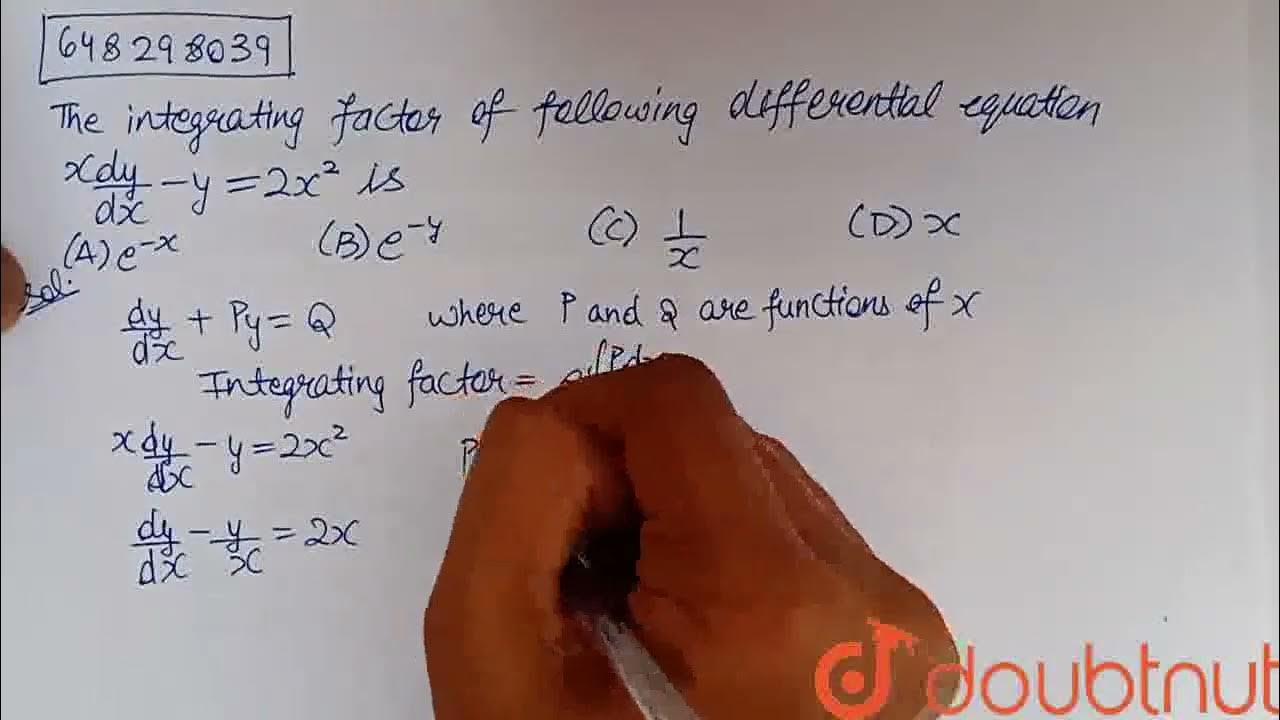 648298039
The integrating factor of following differential equation
x dy/dx - y = 2x² is
(A) e^-x (B) e^-y (C) 1/x (D) x
Sol:
dy/dx + Py = Q where P and Q are functions of x
Integrating factor =
x dy/dx - y = 2x² P
dy/dx - y/x = 2x
doubtnut